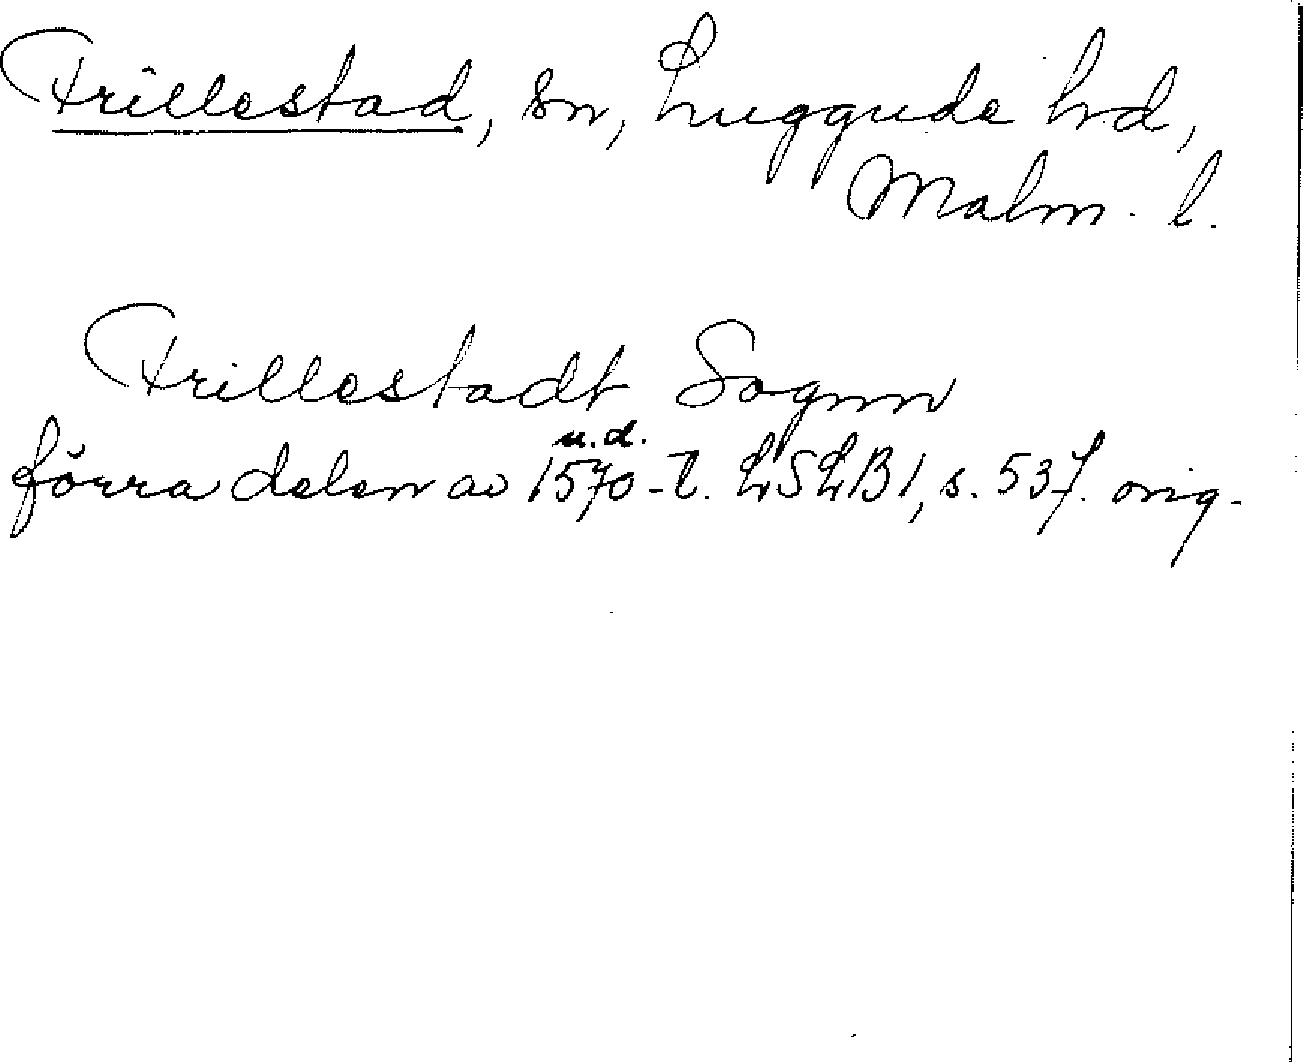 Frillestad, sn, Luggude hd,
Malm. l.
Frillestadt Sognn
u.d.
förra delen av 1570-t. LSLB1, s. 537. orig.